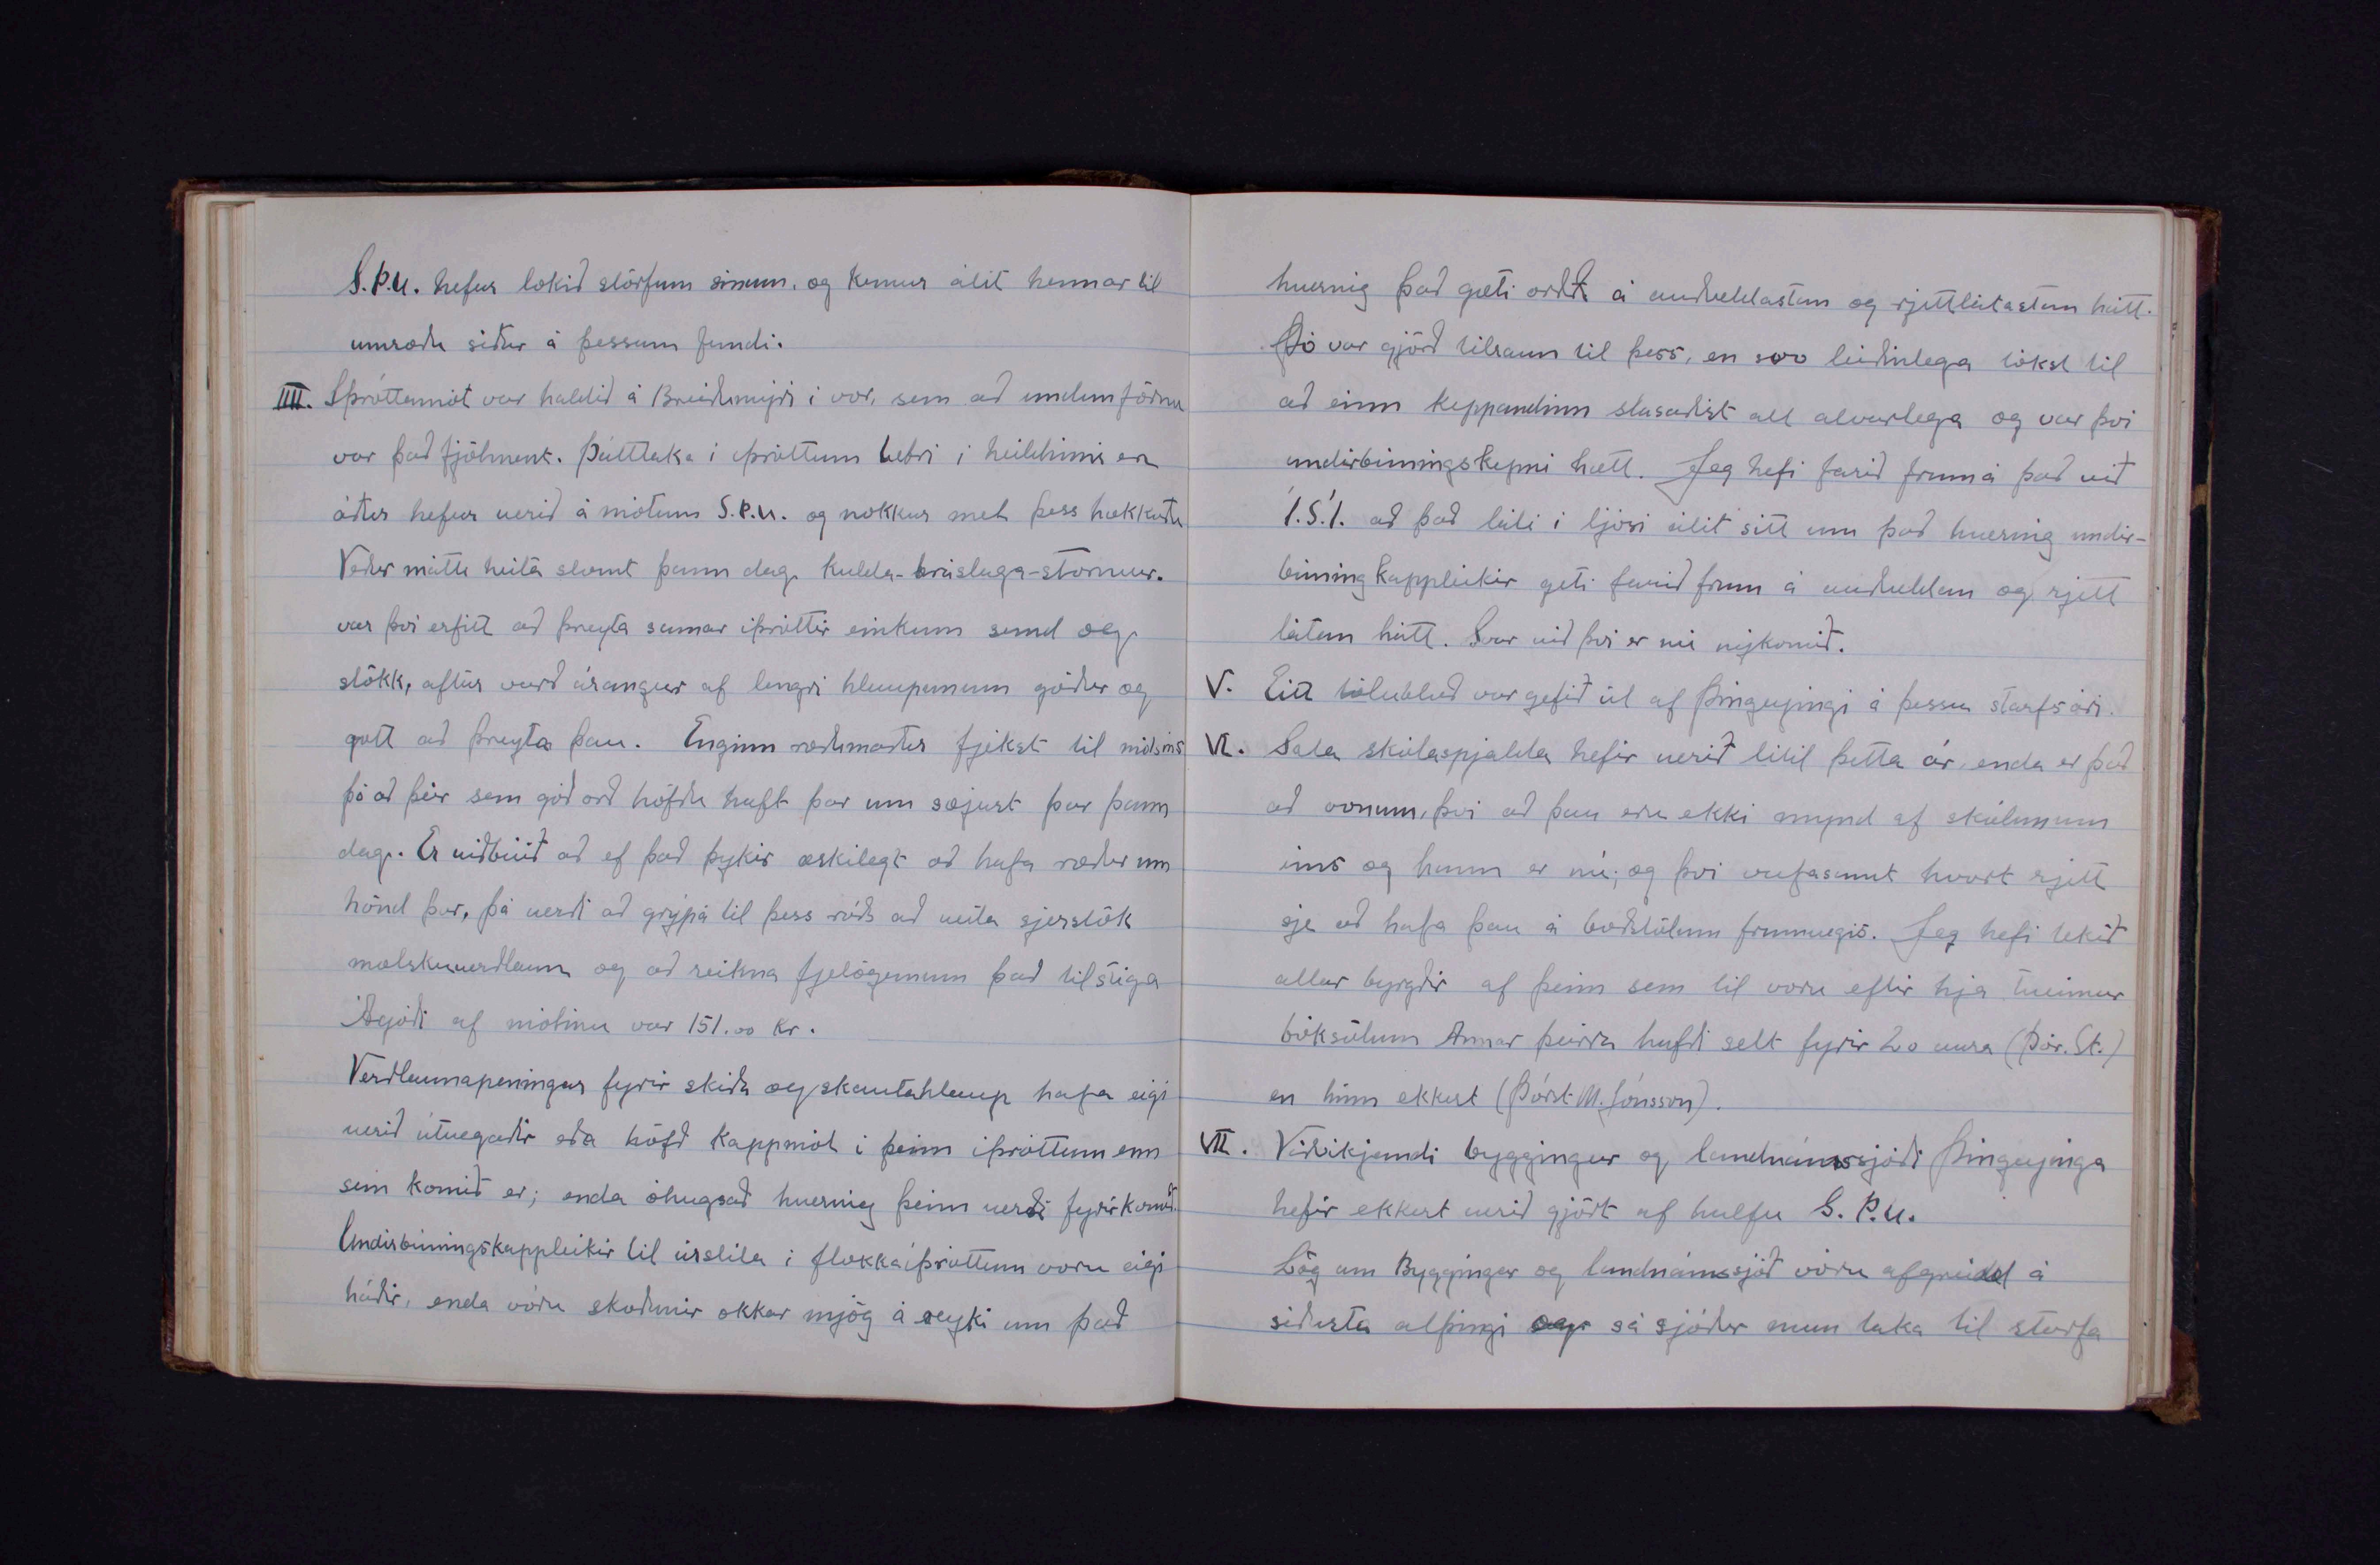 S.Þ.U. hefur lokið störfum sínum, og kemur álit hennar til
umræðu síðar á þessum fundi.
IIII. Íþróttamót var haldið á Breiðumýri í vor, sem að undanförnu
var það fjölment. Þátttaka í íþróttum betri í heildinni en
áður hefur verið á mótum S.Þ.U. og nokkur met þess hækkuðu
Veður mátti heita slæmt þann dag, kulda-hráslaga-stormur.
var því erfitt að þreyta sumar íþróttir einkum sund og
stökk, aftur varð árangur af lengri hlaupunum góður og
gott að þreyta þau. Enginn ræðumaður fjekst til mótsins
þó að þeir sem góð orð höfðu haft þar um sæjust þar þann
dag. Er viðbúið að ef það þykir æskilegt að hafa ræður um
hönd þar, þá verði að grýpa til þess ráðs að veita sjerstök
mælskuverðlaun og að reikna fjelögunum það til stiga
Ágóði af mótinu var 151.00 kr.
Verðlaunapeningar fyrir skíða og skautahlaup hafa eigi
verið útvegaðir eða höfð kappmót í þeim íþróttum enn
sem komið er; enda óhugsað hvernig þeim verði fyrirkomið.
Undirbúningskappleikir til úrslita í flokkaíþróttum voru eigi
háðir, enda vóru skoðanir okkar mjög á reyki um það
hvernig það gæti orðið á auðveldastan og rjettlátastan hátt.
Þó var gjörð tilraun til þess, en svo leiðinlega tókst til
að einn keppandinn slasaðist all alvarlega og var því
undirbúningskepni hætt. Jeg hefi farið fram á það við
Í.S.Í. að það láti í ljósi álit sitt um það hvernig undir-
búning kappleikir geti farið fram á auðveldan og rjett
látan hátt. Svar við því er nú nýkomið.
V. Eitt tölublað var gefið út af Þingeyingi á þessu starfsári.
VI. Sala skólaspjalda hefir verið lítil þetta ár, enda er það
að vonum, því að þau eru ekki mynd af skólanum
eins og hann er nú; og því vafasamt hvort rjett
sje að hafa þau á boðstólum framvegis. Jeg hefi tekið
allar byrgðir af þeim sem til voru eftir hjá tveimur
bóksölum Annar þeirra hafði selt fyrir 20 aura (Þór. St.)
en hinn ekkert (Þórst. M. Jónsson).
VII. Viðvikjandi byggingar og landnámssjóði Þingeyinga
hefir ekkert verið gjört af hálfu S.Þ.U.
Lög um Byggingar og landnámssjóð vóru afgreidd á
síðasta alþingi og sá sjóður mun taka til starfa